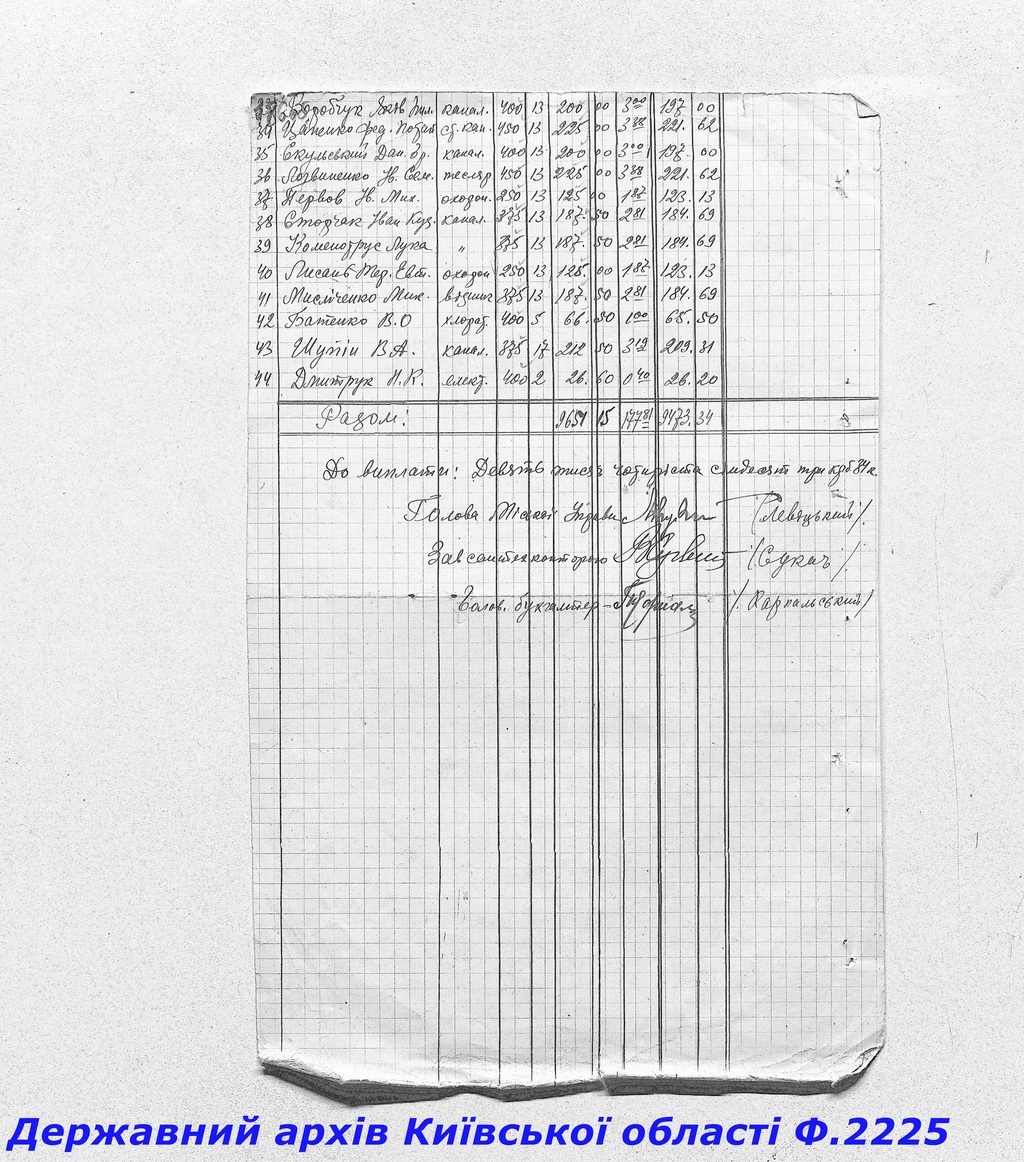 Коробчук Яків Пил. канал. 400 13 200 00 3 00 197 00
34 Цапенко Фед. Потап ст. кан. 450 13 225 00 3 38 221. 62
35 Скульський Дан. Гр. канал. 400 13 200 00 3 00 197. 00
36 Логвиненко Ів. Сем. тесляр 450 13 225 00 3 38 221. 62
37 Первов Ів. Мих. охорон. 250 13 125 00 1 87 123. 13
38 Іван Куз. канал. 375 13 187. 50 2 81 184. 69
39 Лука " 375 13 187. 50 2 81 184. 69
40 охорон 250 13 125. 00 1 87 123. 13
41 Мих. 375 13 187. 50 2 81 184. 69
42 Батенко В.О хлорат. 400 5 66. 50 1 00 65. 50
43 Шупін В.А. канал. 375 17 212 50 3 19 209. 31
44 Дмитрук Н.К. елект. 400 2 26. 60 0 40 26. 20
Разом: 9651 15 177 81 9473. 34
До виплати: Девять тисяч чотириста сімдесят три крб 34 к.
Голова Міської Управи /Левицький/.
Зав сантехконторою /Сукач/.
Голов. бухгалтер - /. Карпальський/
Державний архів Київської області Ф.2225